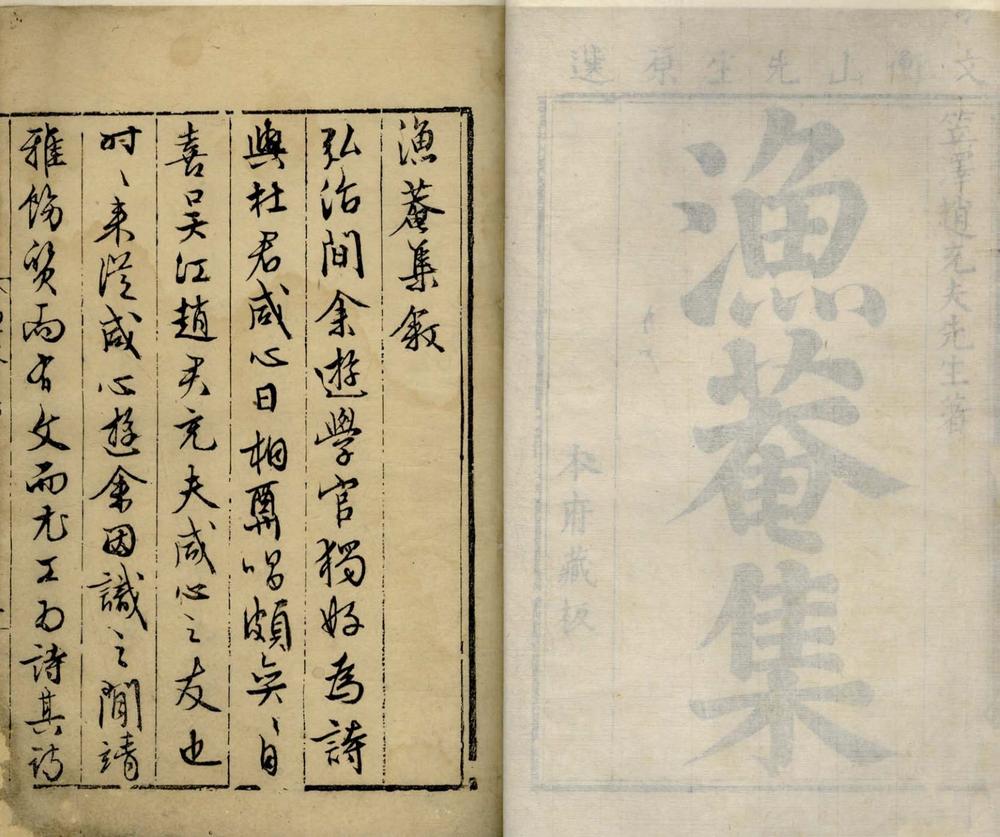 文衡山先生原選
笠澤趙充夫先生著
漁菴集
本府藏板
漁菴集叙
弘治間余遊學官獨好為詩
與杜君咸心日相唱頗奕〻自
喜吳江趙君充夫咸心之友也
时〻来從咸心遊余因識之閒靖
雅飭質而有文而尤工为詩其詩